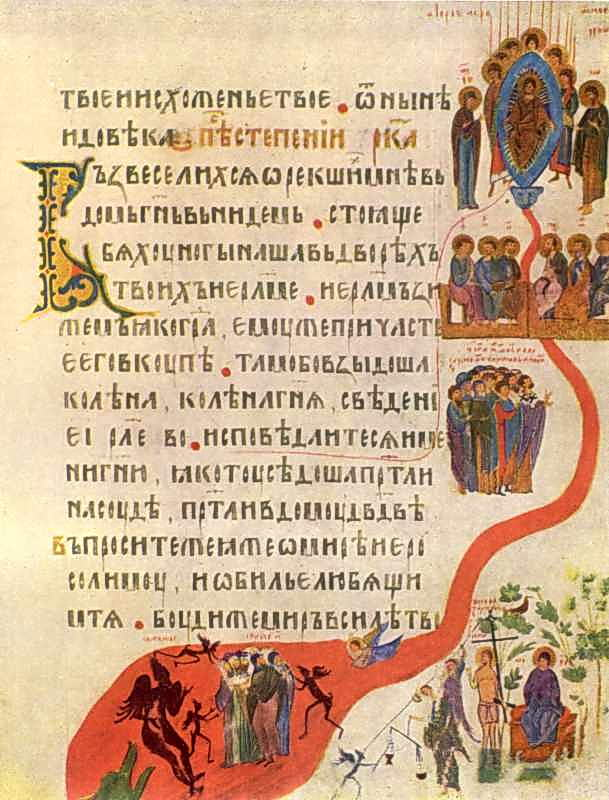 твоеиисхоженьетвое . ѿнынѣ
идовѣка пѣⷭ҇степеніи рк҃а
Възвеселихсяѡрекшиⷯмнѣвъ
домъгн҃ьвънидемъ . стоꙗще
бяхоуногынашавьдворѣхъ
твоихъиерⷭ҇лме . иерⷭ҇лмъзи
жемъꙗкогра҃ , емоужепричасть
еегов коупѣ . тамобовзыдоша
колѣна , колѣнагн҃я , свѣдени
еі р҃лево . исповѣдаитесяиме
нигн҃и , ꙗкотоусѣдошапрⷭ҇тли
насоудѣ , прⷭ҇тливдомоудв҃двѣ
въпроситежеꙗжеѡмирѣиеро
солимоу , иѡбильелюбящи
мтя . боудимежиръвсилѣтво